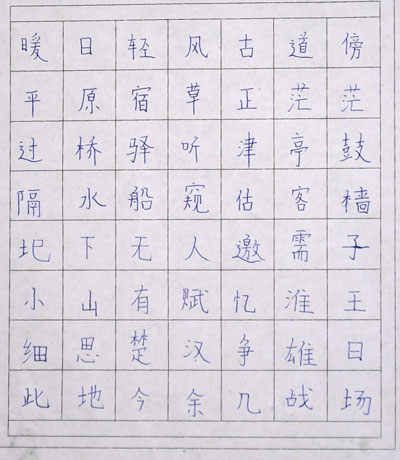 暖日轻风古道傍
平原宿草正茫茫
过桥驿听津亭鼓
隔水船窥估客樯
圯下无人邀需子
小山有赋忆淮王
细思楚汉争雄日
此地今余几战场